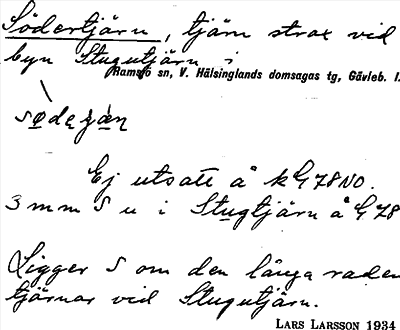 Södertjärn, tjärn strax vid
byn Stugutjärn i
Ramsjö sn, V. Hälsinglands domsagas tg, Gävleb. l.
Ej utsatt å kG78NO.
3 mm S u i Stugtjärn å G78
Ligger S om den långa raden
tjärnar vid Stugutjärn.
LARS LARSSON 1934